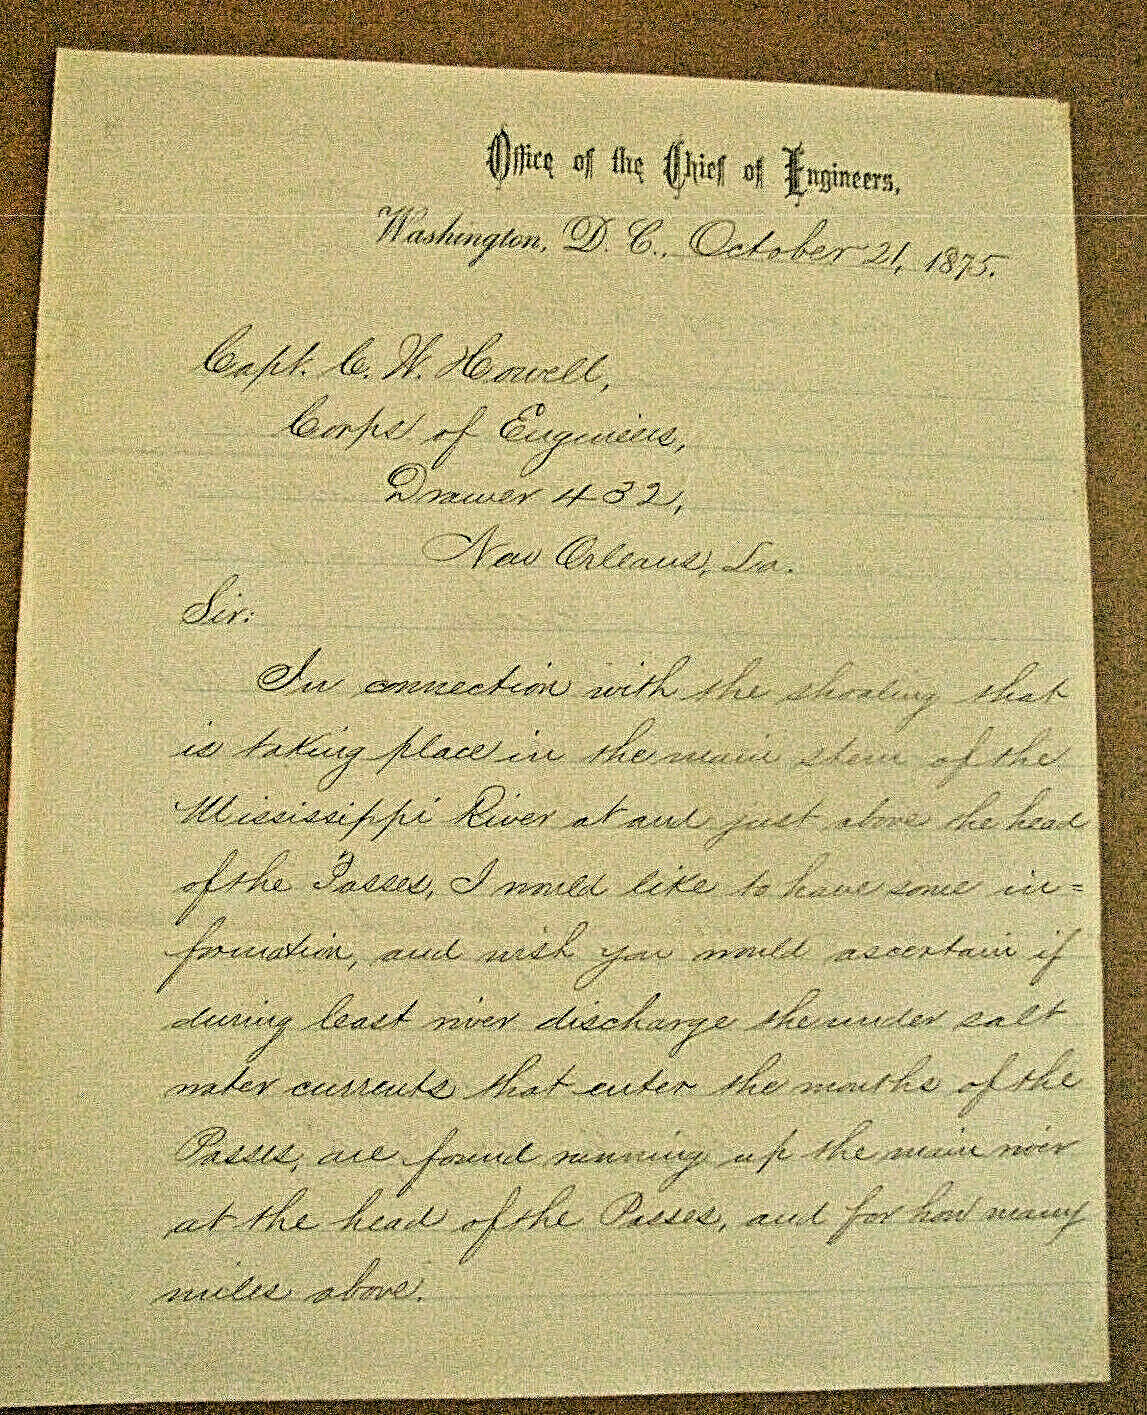 Office of the Chief of Engineers,
Washington, D. C., October 21, 1875.
Capt. C. W. Howell,
Corps of Engineers,
Drawer 432,
New Orleans, La.
Sir:
In connection with the shoaling that
is taking place in the main stem of the
Mississippi River at and just above the head
of the Passes, I would like to have some in=
formation, and wish you would ascertain if
during least river discharge the under salt
water currents that enter the mouths of the
Passes, are found running up the main river
at the head of the Passes, and for how many
miles above.